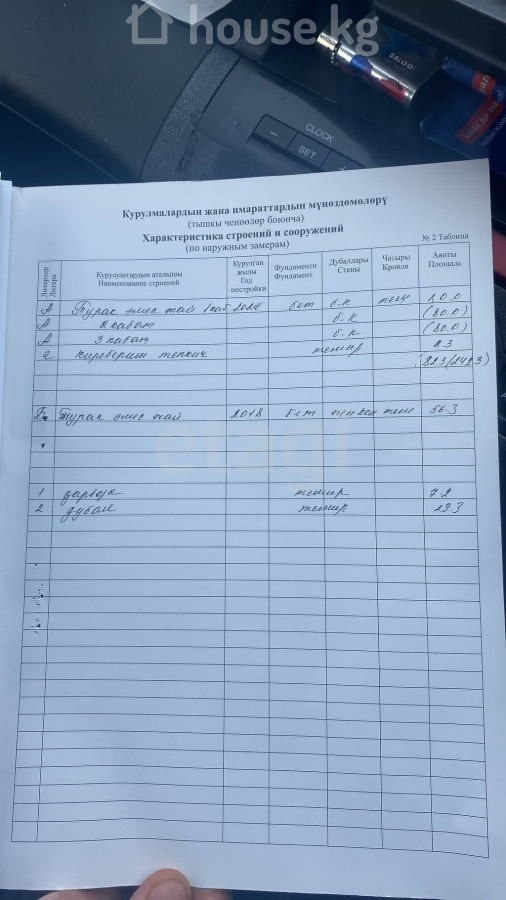 house.kg
SALOO
CLOCK
SET
Курулмалардын жана имараттардын мүнөздөмөлөрү
(тышкы ченөөлөр боюнча)
Характеристика строений и сооружений
(по наружным замерам)
№ 2 Таблица
Литерлер Литера
Курулуштардын аталышы Наименование строений
Курулган жылы Год постройки
Фундаменти Фундамент
Дубалдары Стены
Чатыры Кровля
Аянты Площадь
А Турак эмес жай 1каб 2024 бет б.к темир 80.0
А 2 кабат б.к (80.0)
А 3 кабат б.к (80.0)
а кирəбериш тепкич темир 2.3
(82.3/242.3)
Б Турак эмес жай 2018 бет пен.кон тем 56.3
etagi
1 дарбаза темир 7.2
2 дубал темир 29.3